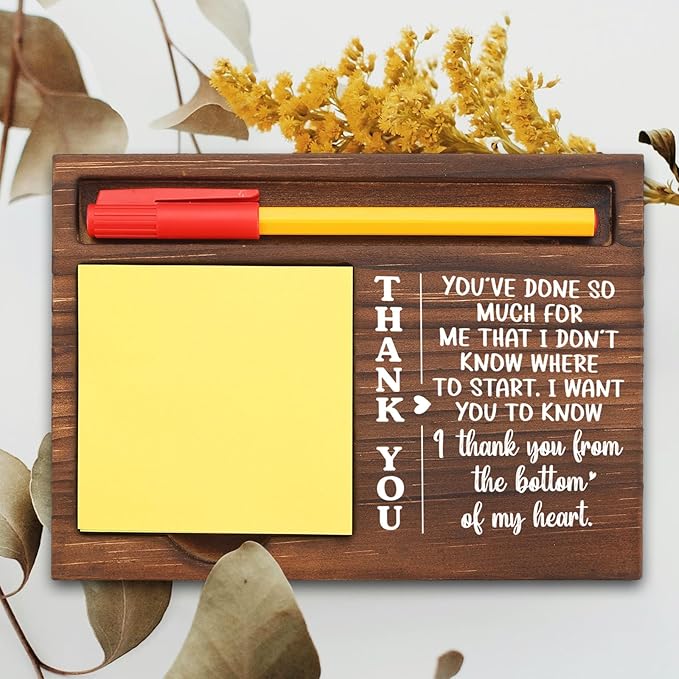 THANK YOU
YOU'VE DONE SO
MUCH FOR
ME THAT I DON'T
KNOW WHERE
TO START. I WANT
YOU TO KNOW
I thank you from
the bottom
of my heart.